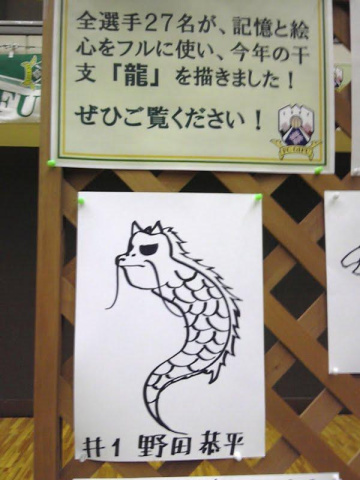 全選手27名が、記憶と絵
心をフルに使い、今年の干
支「龍」を描きました！
ぜひご覧ください！
FC GIFU
#1 野田恭平